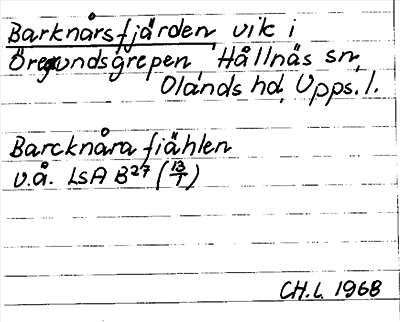 Barknårsfjärden, vik i
Öregrundsgrepen Hållnäs sn,
Olands hd, Upps. l.
Barcknåra fiählen
v.å. LSA B²⁷ (13/1)
CH.L. 1968